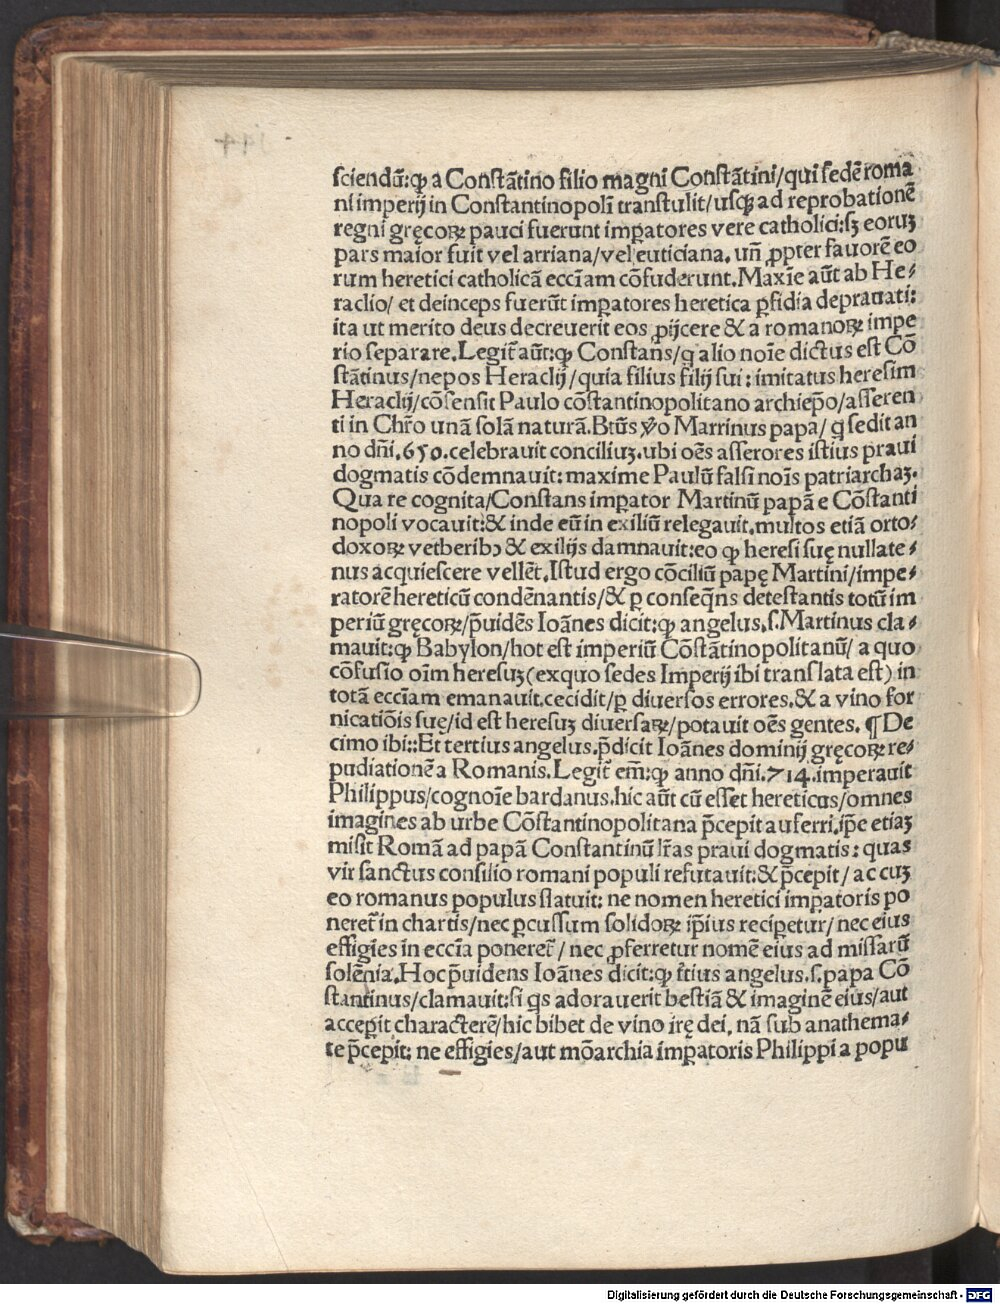 sciendū:ꝙ a Constātino filio magni Constātini/qui sedē roma
ni imperij in Constantinopolī transtulit/usqꝫ ad reprobationē
regni gręcoꝝ pauci fuerunt imꝑatores vere catholici:sꝫ eoruꝫ
pars maior fuit vel arriana/vel euticiana. un̄ ꝓpter fauorē eo
rum heretici catholicā eccĪam cōfuderunt.Maxīe aūt ab He⸗
raclio/ et deinceps fuerūt imꝑatores heretica ꝑfidia deprauati:
ita ut merito deus decreuerit eos ꝓijcere & a romanoꝝ impe
rio separare.Legit̄ aūt:ꝙ Constans/q̄ alio noīe dictus est Cō
stātinus/nepos Heraclij/quia filius filij sui: imitatus heresim
Heraclij/cōsensit Paulo cōstantinopolitano archiep̄o/asseren
ti in Chr̄o unā solā naturā.Btūs ꝟo Martinus papa/ q̄ sedit an
no dn̄i.650.celebrauit conciliuꝫ.ubi oēs asserores istius praui
dogmatis cōdemnauit: maxime Paulū falsi noīs patriarchaꝫ.
Qua re cognita/Constans imꝑator Martinū papā e Cōstanti
nopoli vocauit:& inde eū in exiliū relegauit.multos etiā orto⸗
doxoꝝ vetheribꝰ & exilijs damnauit:eo ꝙ heresi suę nullate⸗
nus acquiescere vellēt.Istud ergo cōciliū papę Martini/impe⸗
ratorē hereticū condēnantis/& ꝑ conseq̄ns detestantis totū im
periū gręcoꝝ/p̄uidēs Ioānes dicit:ꝙ angelus.s.Martinus cla⸗
mauit:ꝙ Babylon/hot est imperiū Cōstātinopolitanū/ a quo
cōfusio oīm heresuꝫ(exquo sedes Imperij ibi translata est) in
totā eccīam emanauit.cecidit/ꝑ diuersos errores.& a vino for
nicatiōis suę/id est heresuꝫ diuersaꝝ/potauit oēs gentes. ¶ De
cimo ibi::Et tertius angelus.p̄dicit Ioānes dominij gręcoꝝ re⸗
pudiationē a Romanis.Legit̄ em̄:ꝙ anno dn̄i.714.imperauit
Philippus/cognoīe bardanus.hic aūt cū esset hereticus/omnes
imagines ab urbe Cōstantinopolitana p̄cepit auferri.ip̄e etiaꝫ
misit Romā ad papā Constantinū lr̄as praui dogmatis: quas
vir sanctus consilio romani populi refutauit:& p̄cepit/ ac cuꝫ
eo romanus populus statuit: ne nomen heretici imꝑatoris po
neret̄ in chartis/nec ꝑcussum solidoꝝ ip̄ius reciꝑetur/ nec eius
effigies in eccīa poneret̄/ nec ꝓferretur nomē eius ad missarū
solēnia.Hoc p̄uidens Ioānes dicit:ꝙ t̄tius angelus.s.papa Cō
stantinus/clamauit:si q̄s adorauerit bestiā & imaginē eius/aut
acceꝑit characterē/hic bibet de vino irę dei. nā sub anathema⸗
te p̄cepit: ne effigies/aut mōarchia imꝑatoris Philippi a popu
Digitalisierung gefördert durch die Deutsche Forschungsgemeinschaft - DFG